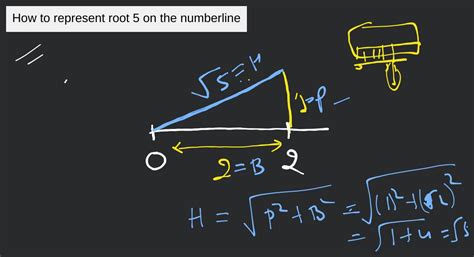 How to represent root 5 on the numberline
√5 = H
1 = P
0
2
2 = B
H = √P²+B² = √(1)²+(2)²
= √1+4 = √5